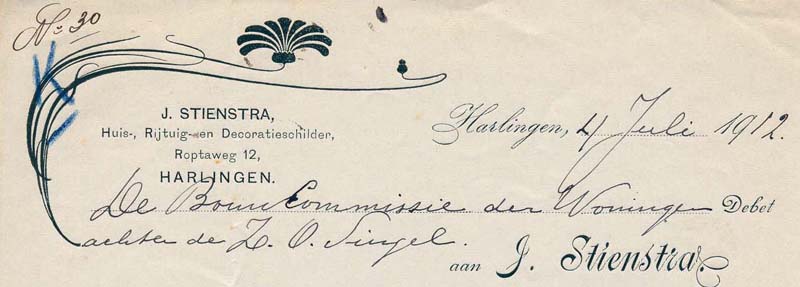 No 30
J. STIENSTRA,
Huis-, Rijtuig- en Decoratieschilder,
Roptaweg 12,
HARLINGEN.
Harlingen, 4 Juli 1912.
De Bouw Commissie der Woningen Debet
achter de Z. O. Singel.
aan J. Stienstra.